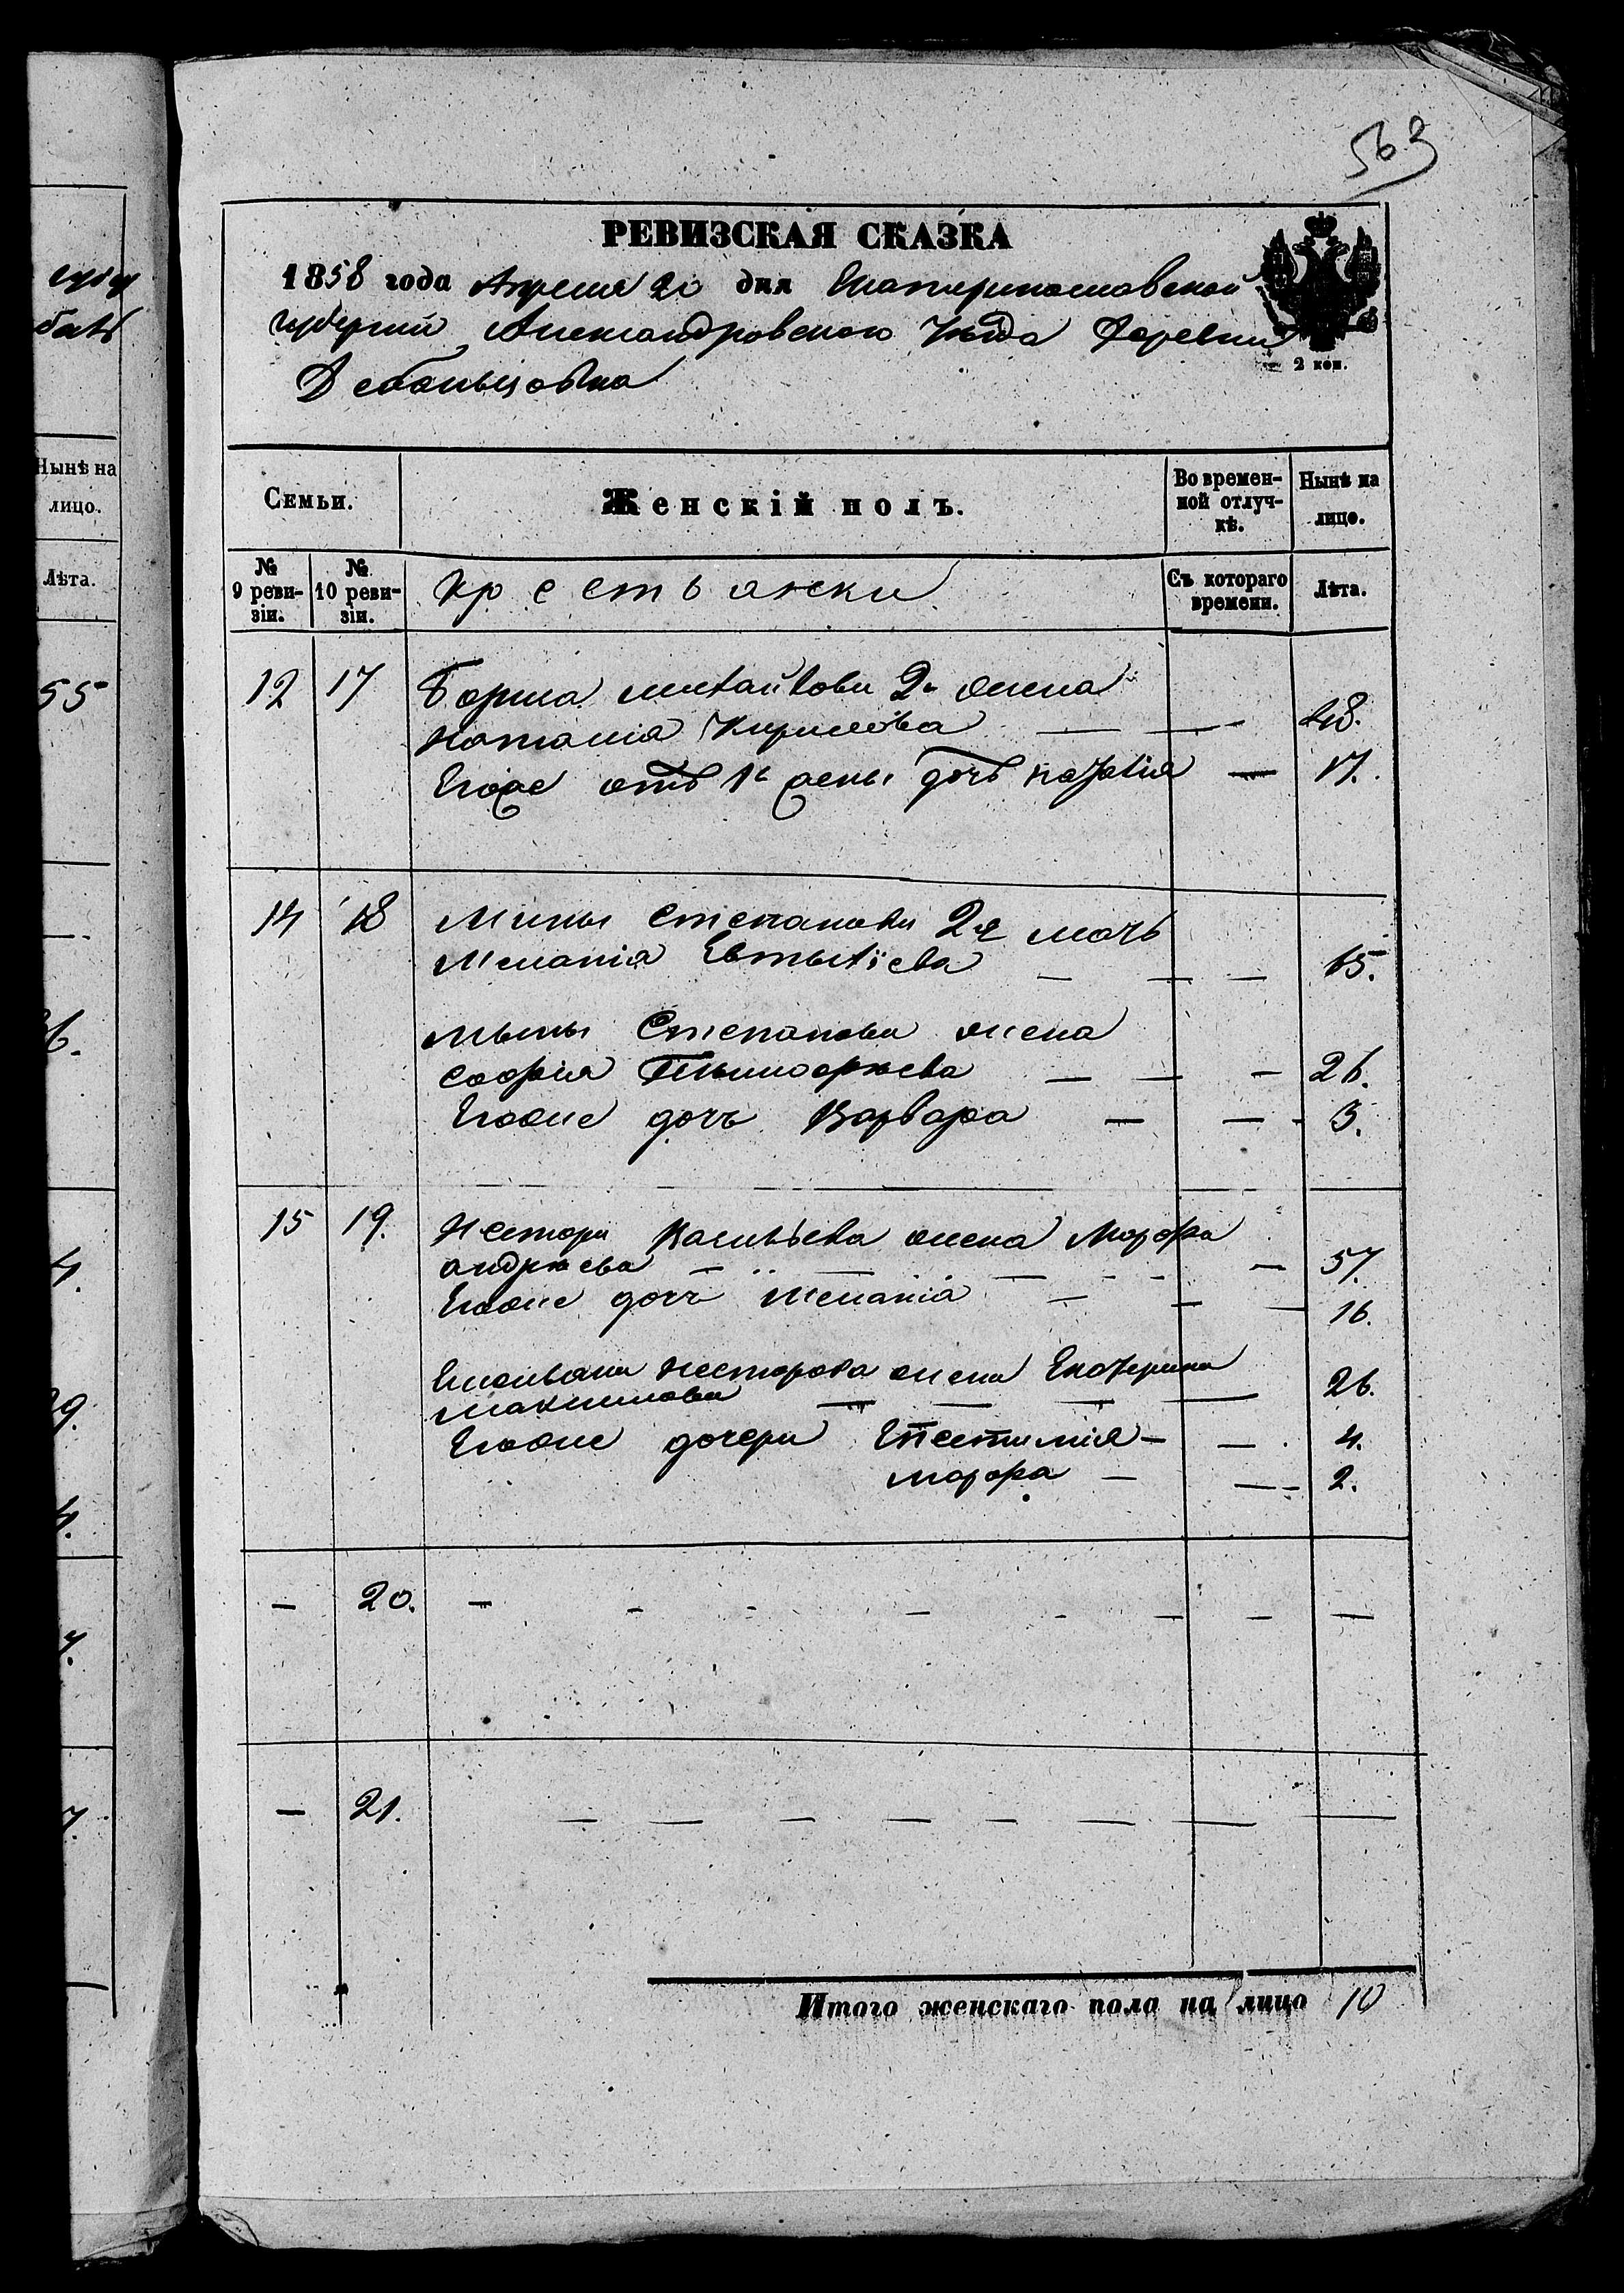 563
РЕВИЗСКАЯ СКАЗКА
1858 года Апреля 20 дня Екатеринославской
губернии Александровского Уѣзда Деревни
Дебальцовка
2 коп.
Семьи.
Женскій полъ.
Во времен-
ной отлуч-
кѣ.
Нынѣ на
лицо.
№
9 реви-
зіи.
№
10 реви-
зіи.
Крестьянки
Съ котораго
времени.
Лѣта.
12 17 Бориса Михайлови 2я жена
Наталія Кирилова — — 48.
Егоже отъ 1й жены дочь — 17.
14 18 Мины Степанови 2я мать
Меланія — — — 65.
Мыны Степанова жена
софія — — — 26.
Егоже дочь Варвара — — 3.
15 19. Нестора Васильева жена Марфа
андреева — — — 57.
Егоже дочь Меланія — — — 16.
Нестерова жена Екатерина
максимова — — — — 26.
Егоже дочери — — 4.
марфа — — 2.
— 20. — — — — — — — —
— 21. — — — — — — — —
Итого женскаго пола на лицо 10
Нынѣ на
лицо.
Лѣта.
55